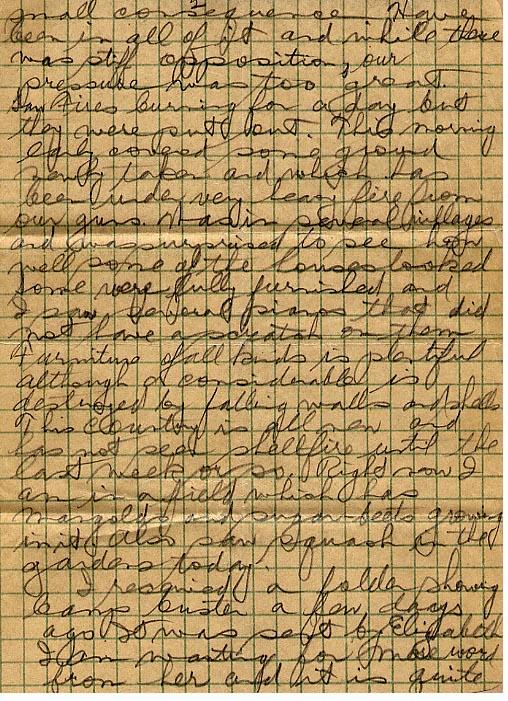 small consequence. Have
been in all of it and while there
was stiff opposition, our
pressure was too great.
Saw Fires burning for a day but
they were put out. This morning
early covered some ground
newly taken and which has
been under very heavy fire from
our guns. Was in several villages
and was surprised to see how
well some of the houses looked
some were fully furnished and
I saw several pianos that did
not have a scratch on them
Furniture of all kinds is plentiful
although a considerable is
destroyed by falling walls and shells
This country is all new and
has not seen shellfire until the
last week or so. Right now I
am in a field which has
mangolds and sugar beets growing
in it. Also saw squash in the
gardens today.
I received a folder showing
Camp Custer a few days
ago It was sent by Elizabeth
I am waiting for more word
from her and it is quite